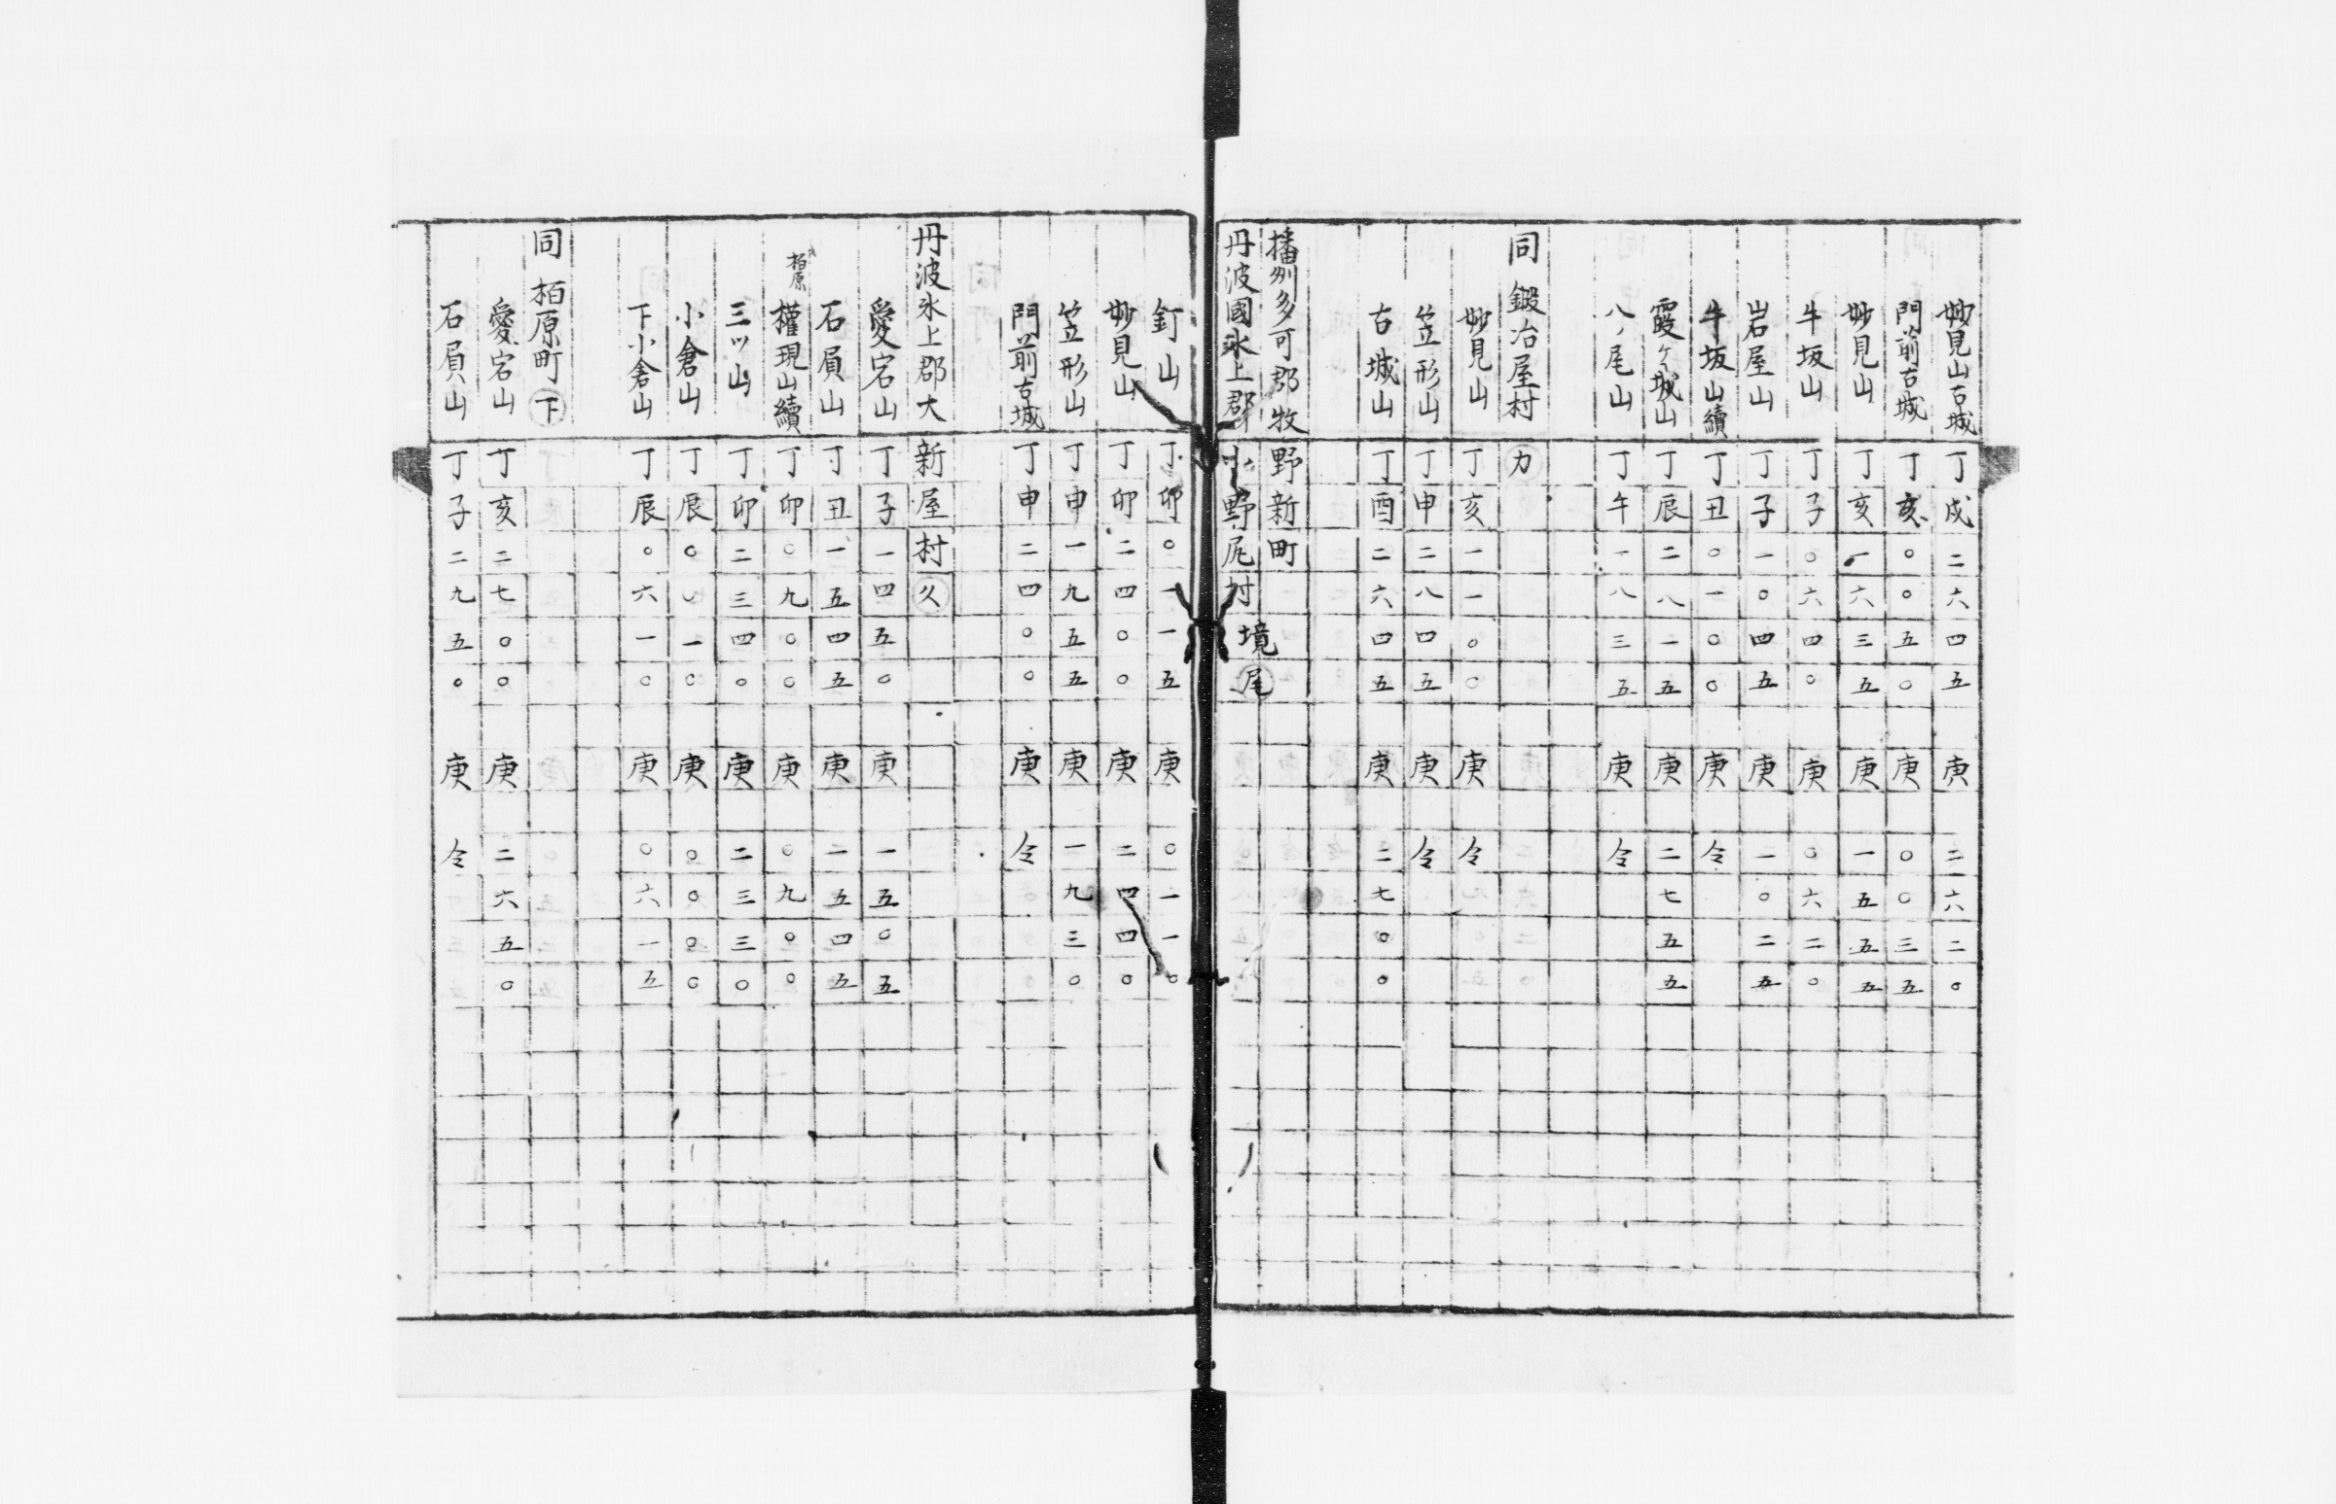 妙見山古城 丁戌二六四五 庚 二六二〇
門前古城 丁亥〇〇五〇 庚 〇〇三五
妙見山 丁亥一六三五 庚 一五五五
牛坂山 丁子〇六四〇 庚 〇六二〇
岩屋山 丁子一〇四五 庚 一〇二五
牛坂山續 丁丑〇一〇〇 庚 仝
霞ケ城山 丁辰二八一五 庚 二七五五
八ノ尾山 丁午一八三五 庚 仝
同 鍛冶屋村 カ
妙見山 丁亥一一〇〇 庚 仝
笠形山 丁申二八四五 庚 仝
古城山 丁酉二六四五 庚 二七〇〇
播州多可郡牧野新町
丹波國氷上郡小野尾村 境 尾
釘山 丁卯〇一一五 庚 〇一一〇
妙見山 丁卯二四〇〇 庚 二四四〇
笠形山 丁申一九五五 庚 一九三〇
門前古城 丁申二四〇〇 庚 仝
丹波氷上郡大新屋村 久
愛宕山 丁子一四五〇 庚 一五〇五
石屓山 丁丑一五四五 庚 一五四五
柏原 權現山續 丁卯〇九〇〇 庚 〇九〇〇
三ツ山 丁卯二三四〇 庚 二三三〇
小倉山 丁辰〇〇一〇 庚 〇〇〇〇
下小倉山 丁辰〇六一〇 庚 〇六一五
同 栢原町 下
愛宕山 丁亥二七〇〇 庚 二六五〇
石屓山 丁子二九五〇 庚 仝